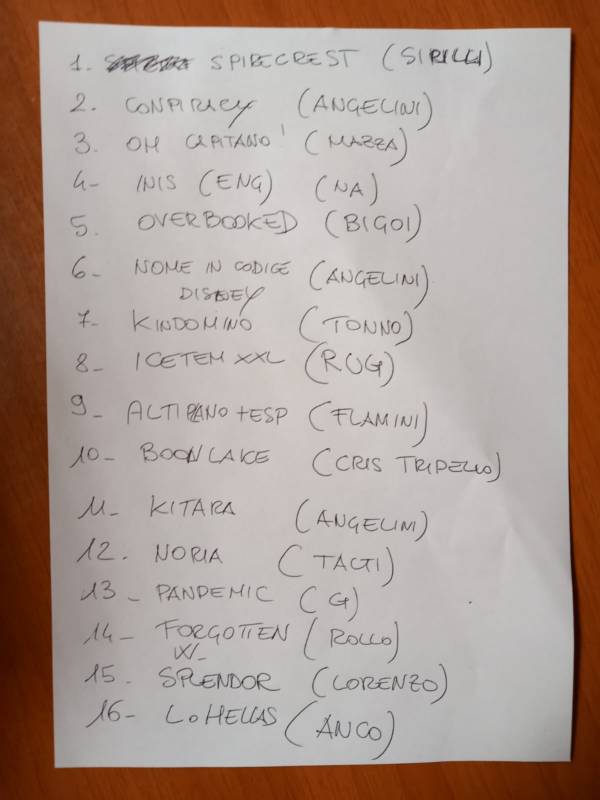 1. SPIRECREST (SIRILLI)
2. CONPIRACY (ANGELINI)
3. OH CAPITANO! (MAZZA)
4- INIS (ENG) (NA)
5. OVERBOOKED (BIGOI)
6- NOME IN CODICE (ANGELINI)
DISNEY
7- KINDOMINO (TONNO)
8- ICETEM XXL (RUG)
9- ALTIPLANO+ESP (FLAMINI)
10- BOONLAKE (CRIS TRIPELLO)
11- KITARA (ANGELINI)
12. NORIA (TACTI)
13- PANDEMIC (G)
14- FORGOTTEN (ROLLO)
W-
15. SPLENDOR (LORENZO)
16- LOHELLAS (ANCO)